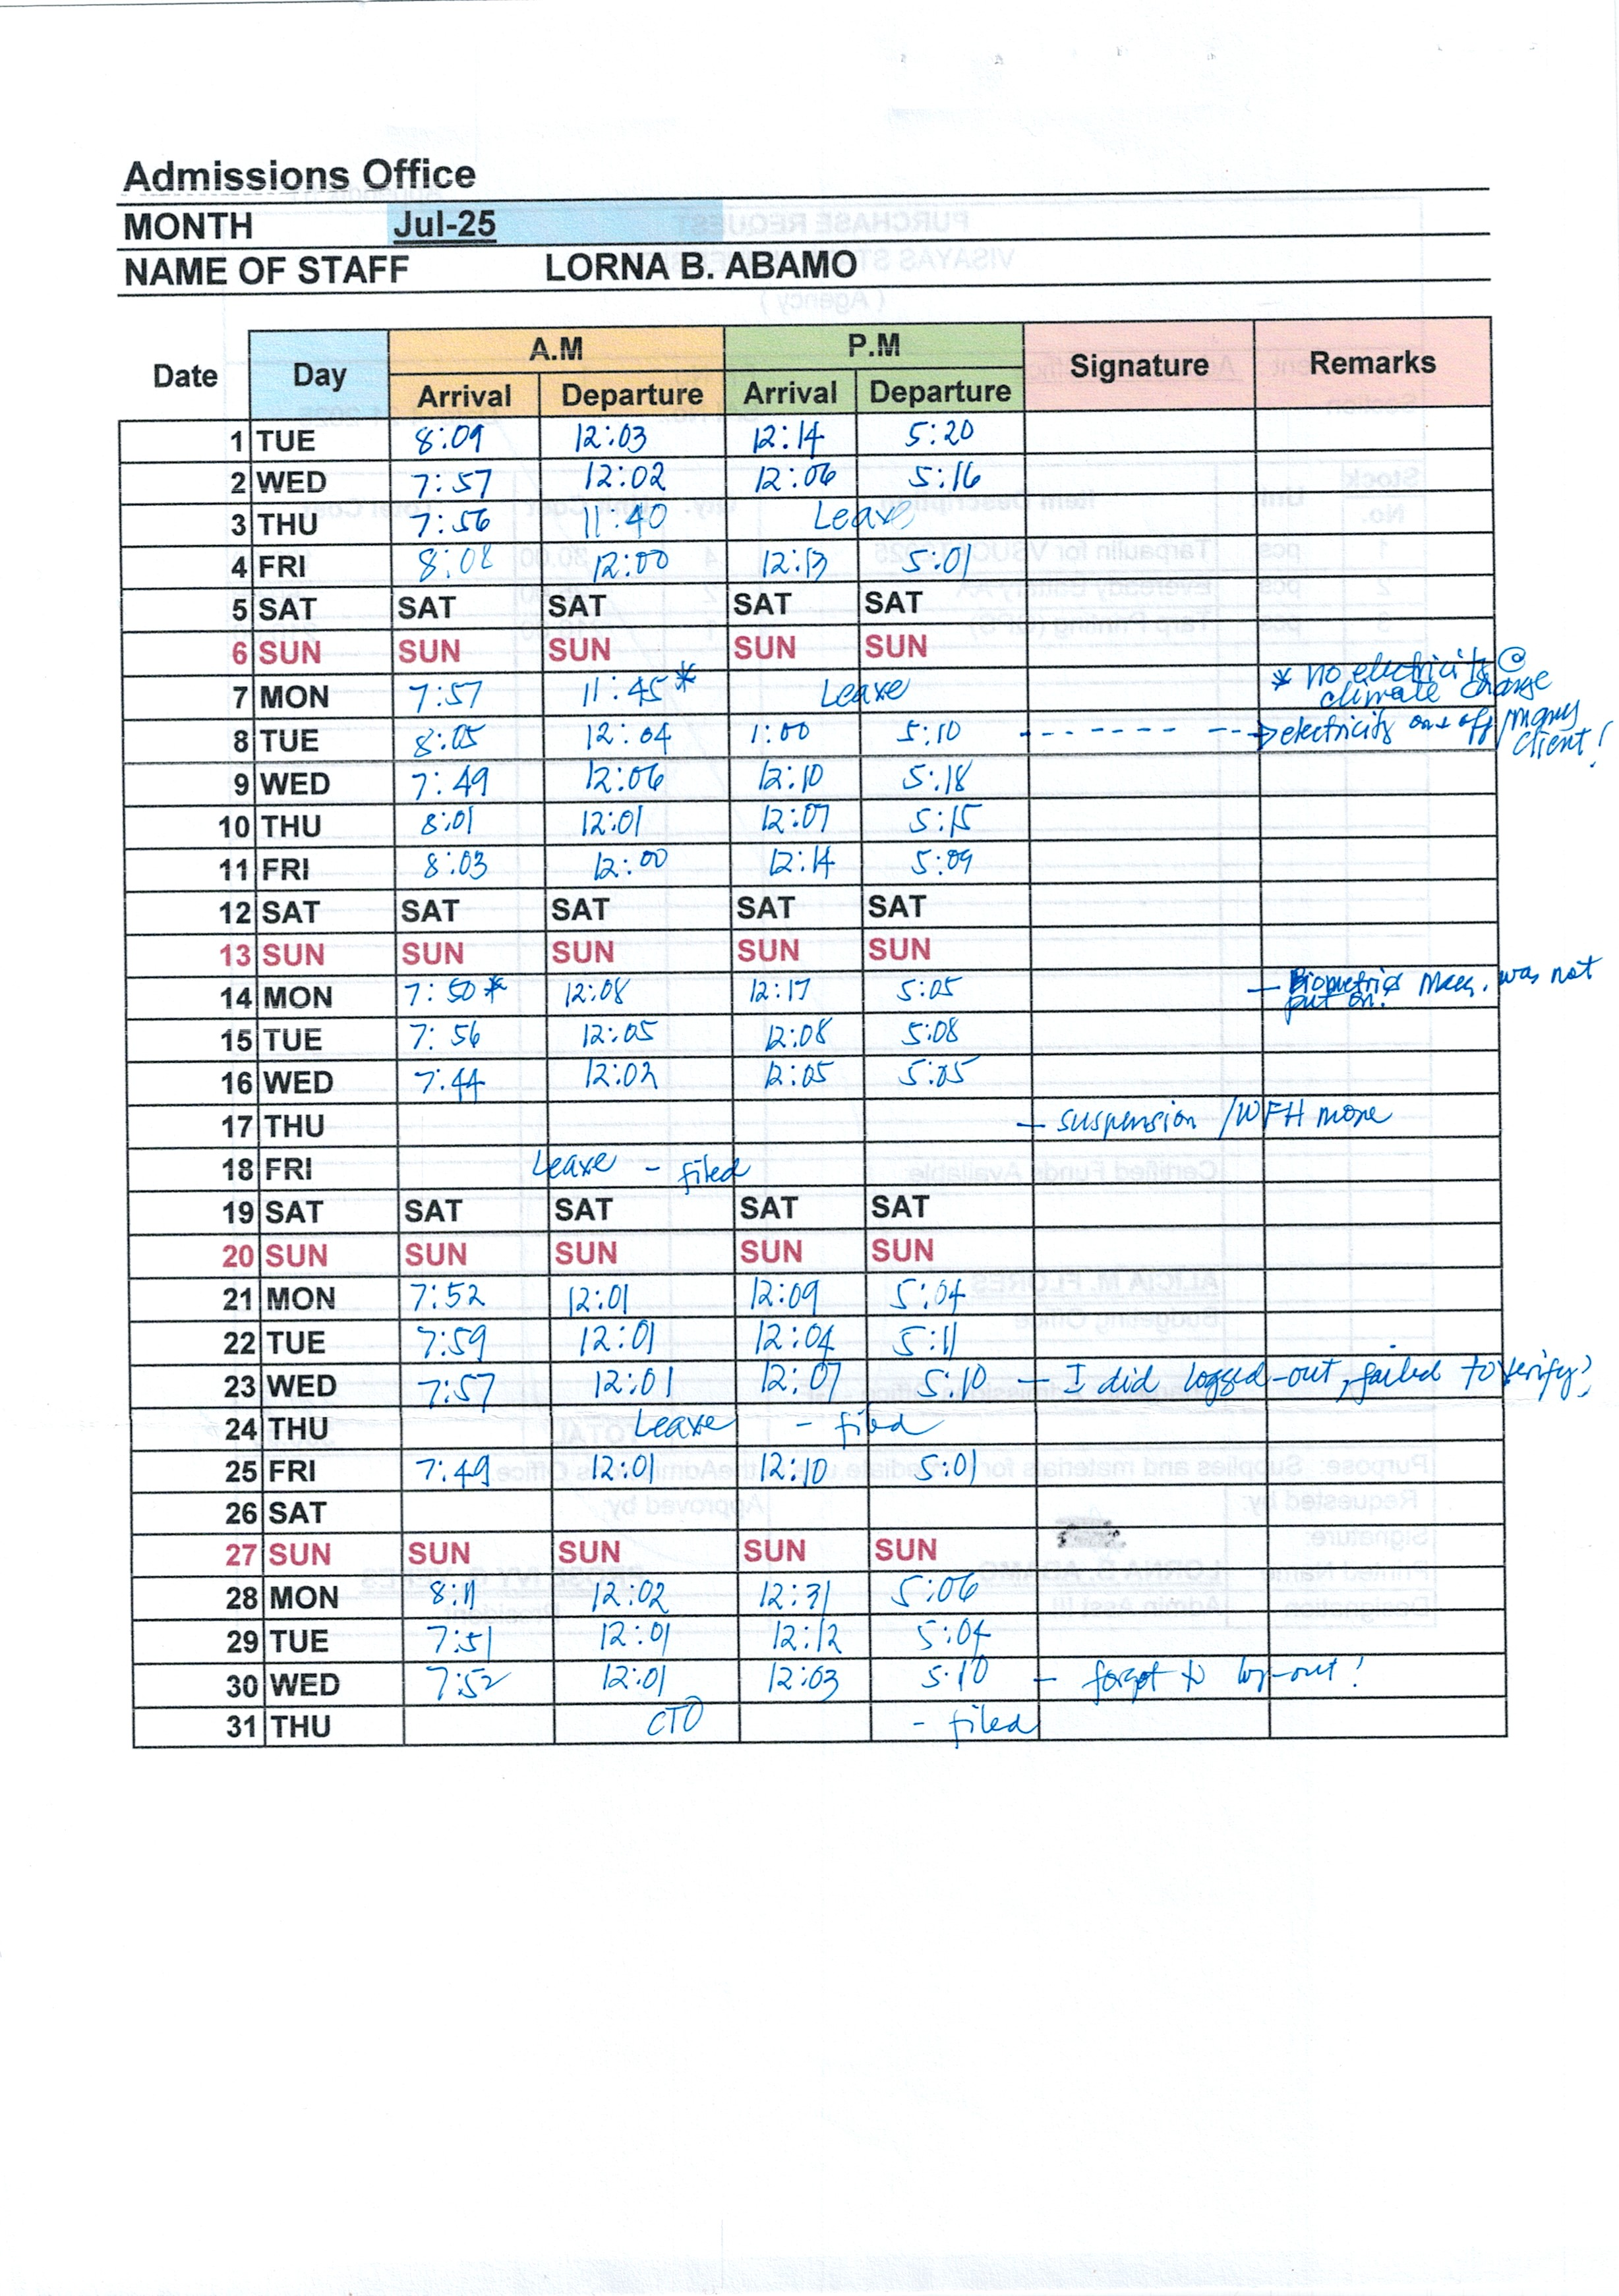 Admissions Office
MONTH Jul-25
NAME OF STAFF LORNA B. ABAMO
Date Day A.M P.M Signature Remarks
Arrival Departure Arrival Departure
1 TUE 8:09 12:03 12:14 5:20
2 WED 7:57 12:02 12:06 5:16
3 THU 7:56 11:40 Leave
4 FRI 8:08 12:00 12:13 5:01
5 SAT SAT SAT SAT SAT
6 SUN SUN SUN SUN SUN
7 MON 7:57 11:45* Leave * no electricity @ climate change
8 TUE 8:05 12:04 1:00 5:10 electricity on & off / many client!
9 WED 7:49 12:06 12:10 5:18
10 THU 8:01 12:01 12:07 5:15
11 FRI 8:03 12:00 12:14 5:09
12 SAT SAT SAT SAT SAT
13 SUN SUN SUN SUN SUN
14 MON 7:50 * 12:08 12:17 5:05 - Biometrics was not put on.
15 TUE 7:56 12:05 12:08 5:08
16 WED 7:44 12:02 12:05 5:05
17 THU - suspension / WFH
18 FRI Leave - filed
19 SAT SAT SAT SAT SAT
20 SUN SUN SUN SUN SUN
21 MON 7:52 12:01 12:09 5:04
22 TUE 7:59 12:01 12:04 5:11
23 WED 7:57 12:01 12:07 5:10 - I did logged-out, failed to verify?
24 THU Leave - filed
25 FRI 7:49 12:01 12:10 5:01
26 SAT
27 SUN SUN SUN SUN SUN
28 MON 8:11 12:02 12:31 5:06
29 TUE 7:51 12:01 12:12 5:04
30 WED 7:52 12:01 12:03 5:10 - forgot to log-out!
31 THU CTO - filed